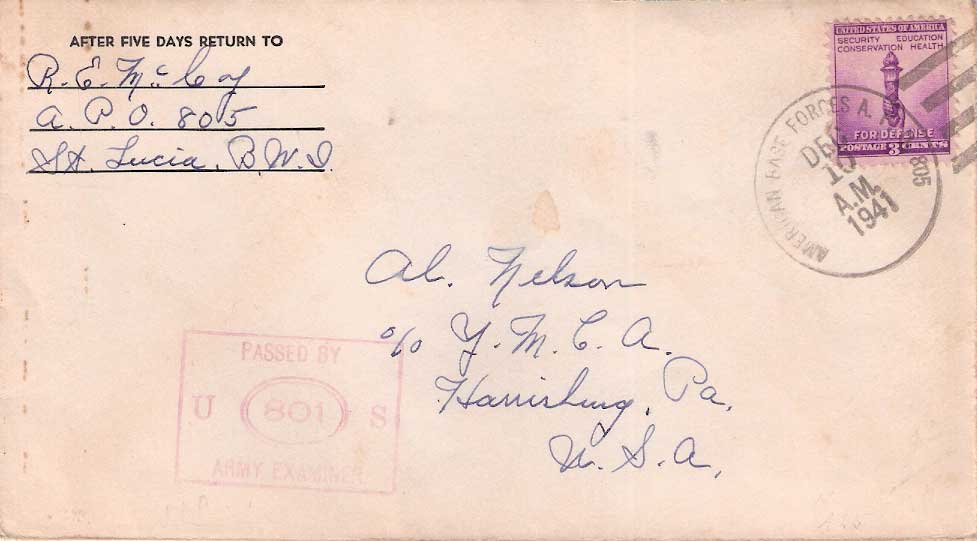 AFTER FIVE DAYS RETURN TO
R. E. McCoy
A. P. O. 805
St. Lucia, B.W.I.
UNITED STATES OF AMERICA
SECURITY EDUCATION
CONSERVATION HEALTH
FOR DEFENSE
POSTAGE 3 CENTS
AMERICAN BASE FORCES A. P. 805
DEC
10
A.M.
1941
Al. Nelson
c/o Y. M. C. A.
Harrisburg, Pa.
U. S. A.
PASSED BY
U 801 S
ARMY EXAMINER